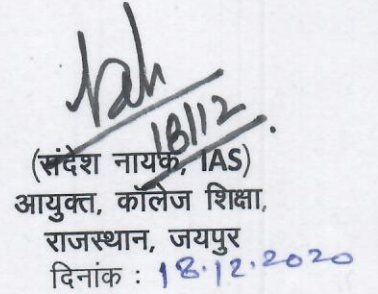 18/12
(संदेश नायक, IAS)
आयुक्त, कॉलेज शिक्षा,
राजस्थान, जयपुर
दिनांक : 18.12.2020